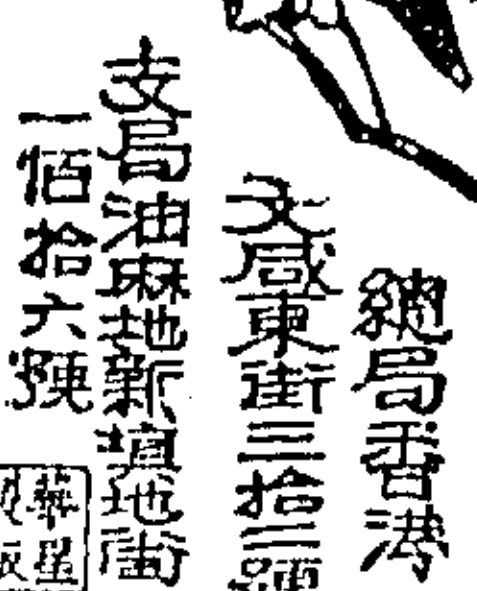 總局香港
文咸東街三拾二號
支局油麻地新填地街
一佰拾六號
華星